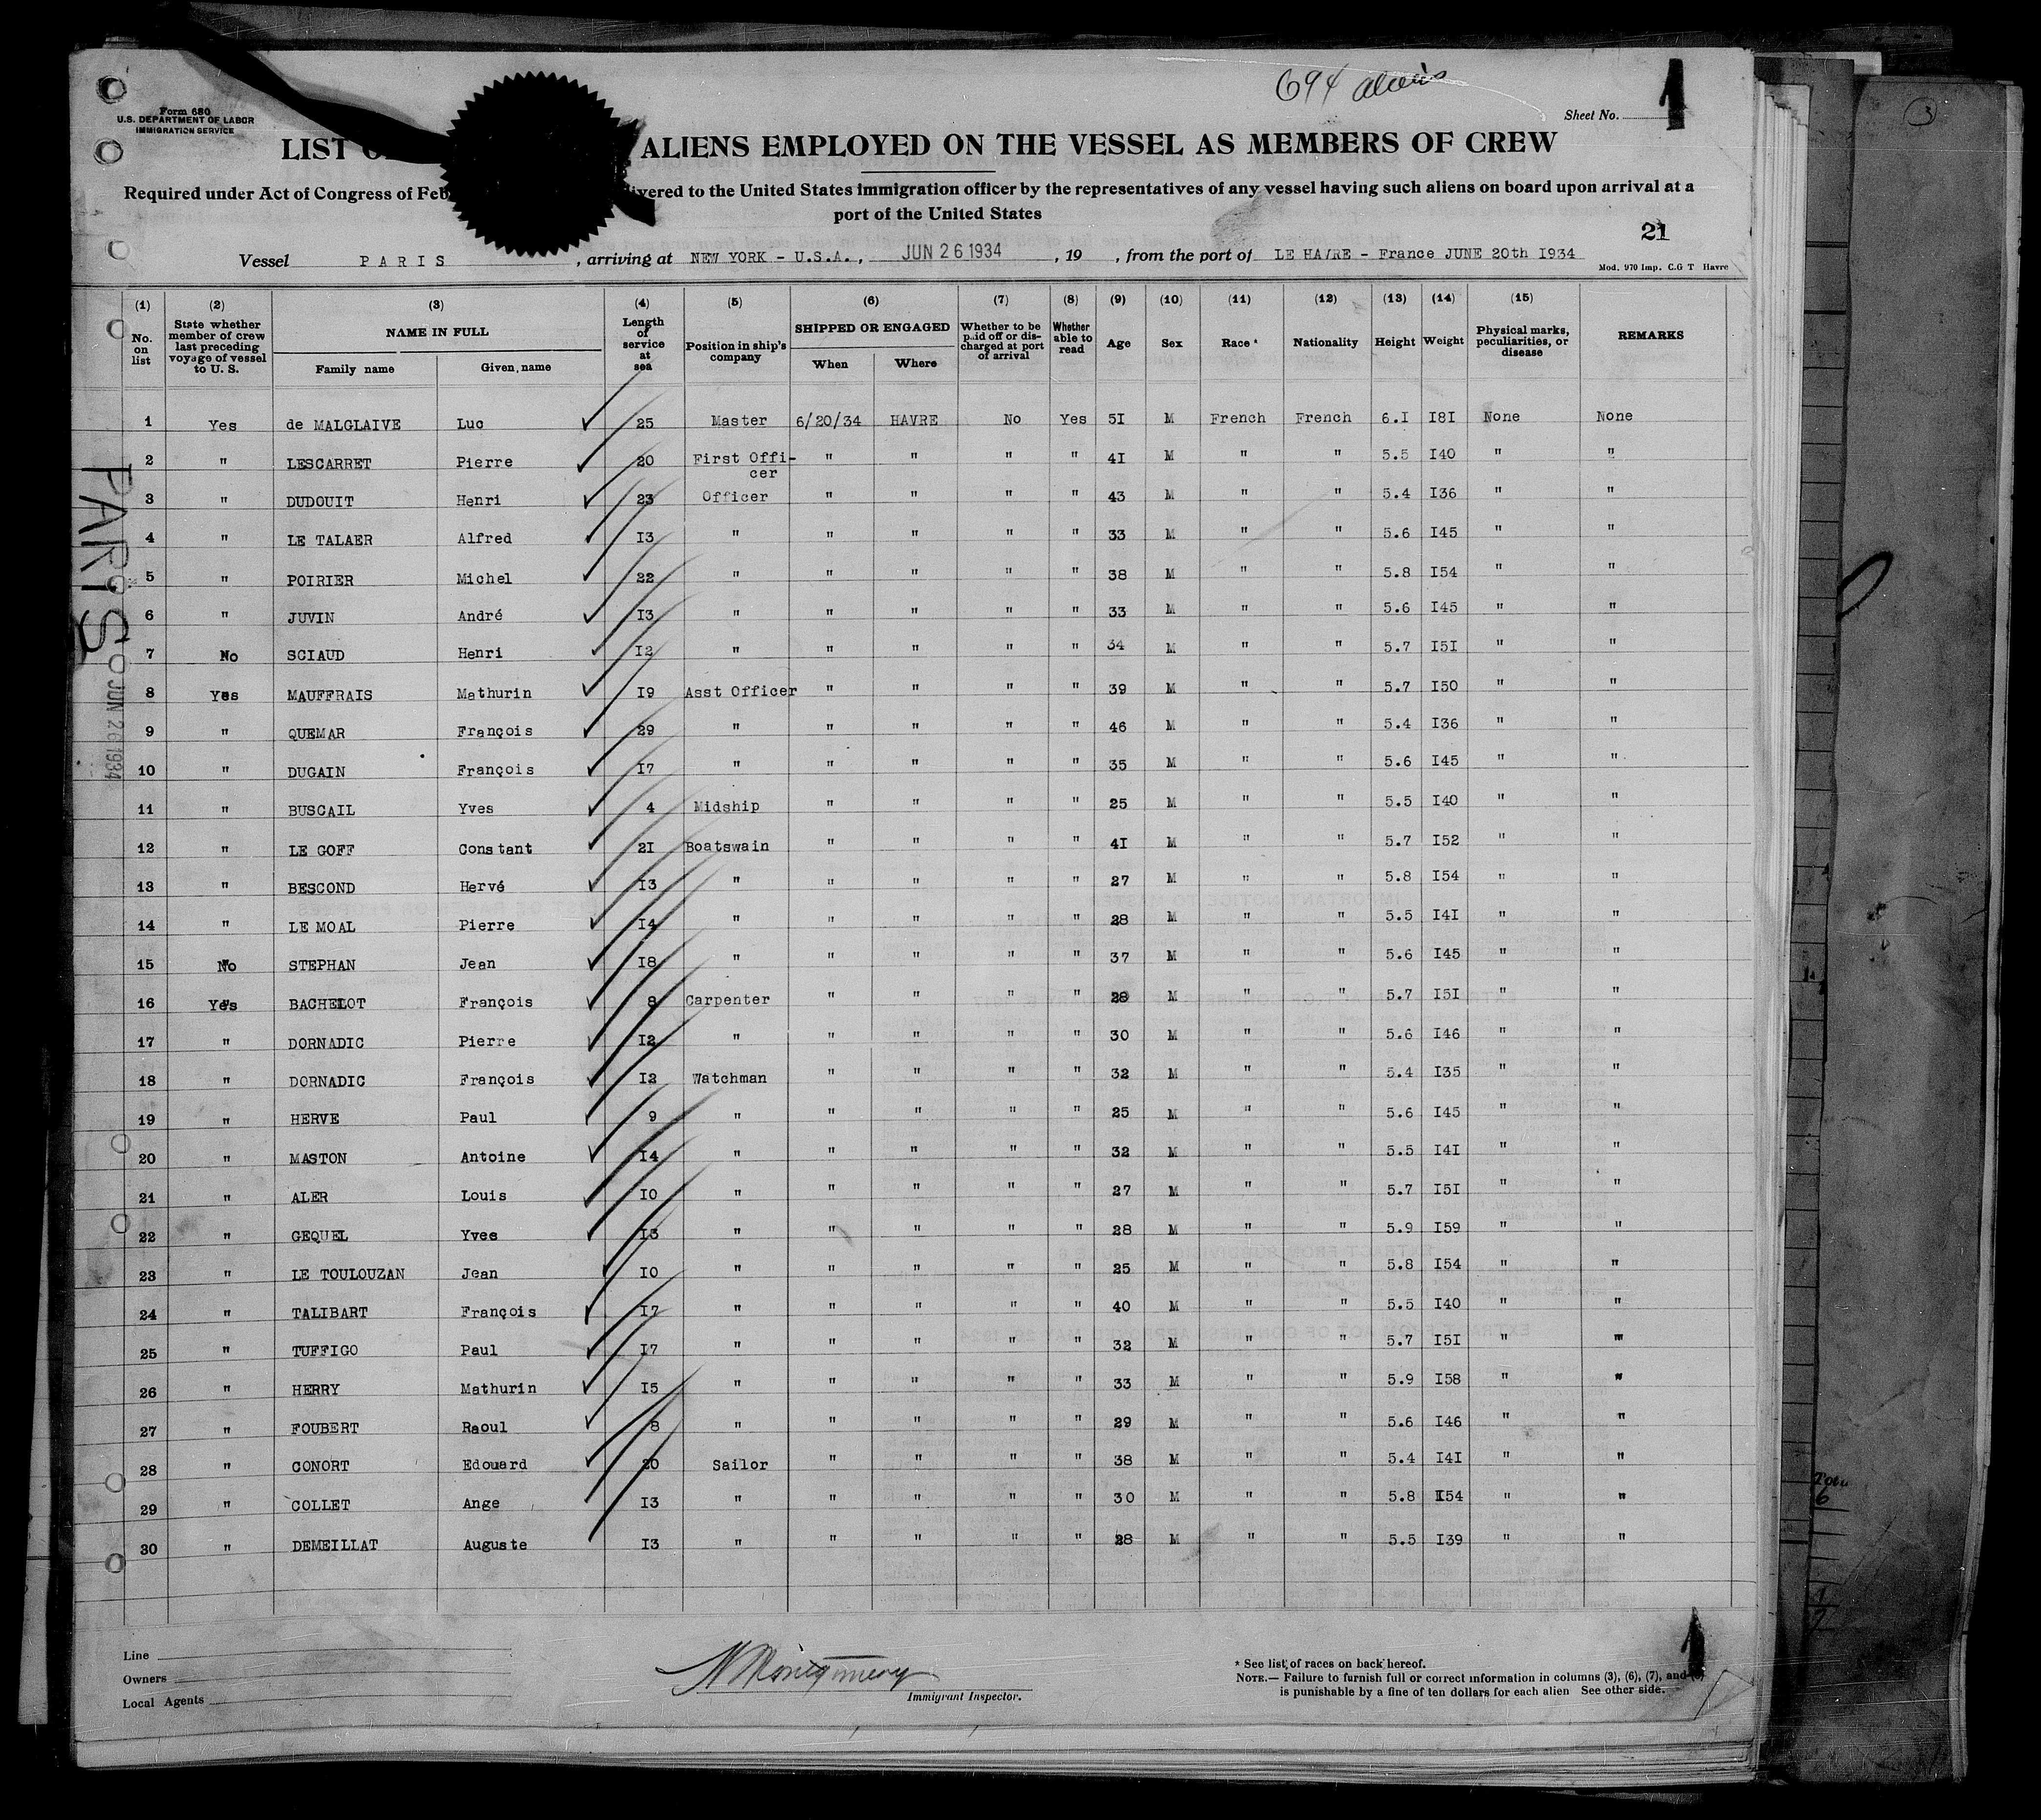 694 aliens
Form 680
U.S. DEPARTMENT OF LABOR
IMMIGRATION SERVICE
Sheet No. 1
LIST O ALIENS EMPLOYED ON THE VESSEL AS MEMBERS OF CREW
Required under Act of Congress of Feb livered to the United States immigration officer by the representatives of any vessel having such aliens on board upon arrival at a
port of the United States
21
Vessel PARIS, arriving at NEW YORK - U.S.A., JUN 26 1934, 19 , from the port of LE HAVRE - France JUNE 20th I934
Mod. 970 Imp. C.G T Havre
(1) (2) (3) (4) (5) (6) (7) (8) (9) (10) (11) (12) (13) (14) (15)
No. on list | State whether member of crew last preceding voyage of vessel to U. S. | NAME IN FULL | Family name | Given name | Length of service at sea | Position in ship's company | SHIPPED OR ENGAGED | When | Where | Whether to be paid off or discharged at port of arrival | Whether able to read | Age | Sex | Race * | Nationality | Height | Weight | Physical marks, peculiarities, or disease | REMARKS
1 Yes de MALGLAIVE Luc 25 Master 6/20/34 HAVRE No Yes 5I M French French 6.I I8I None None
2 " LESCARRET Pierre 20 First Offi-cer " " " " 4I M " " 5.5 I40 " "
3 " DUDOUIT Henri 23 Officer " " " " 43 M " " 5.4 I36 " "
4 " LE TALAER Alfred I3 " " " " " 33 M " " 5.6 I45 " "
5 " POIRIER Michel 22 " " " " " 38 M " " 5.8 I54 " "
6 " JUVIN André I3 " " " " " 33 M " " 5.6 I45 " "
7 No SCIAUD Henri I2 " " " " " 34 M " " 5.7 I5I " "
8 Yes MAUFFRAIS Mathurin I9 Asst Officer " " " " 39 M " " 5.7 I50 " "
9 " QUEMAR François 29 " " " " " 46 M " " 5.4 I36 " "
10 " DUGAIN François I7 " " " " " 35 M " " 5.6 I45 " "
11 " BUSCAIL Yves 4 Midship " " " " 25 M " " 5.5 I40 " "
12 " LE GOFF Constant 2I Boatswain " " " " 4I M " " 5.7 I52 " "
13 " BESCOND Hervé I3 " " " " " 27 M " " 5.8 I54 " "
14 " LE MOAL Pierre I4 " " " " " 28 M " " 5.5 I4I " "
15 No STEPHAN Jean I8 " " " " " 37 M " " 5.6 I45 " "
16 Yes BACHELOT François 8 Carpenter " " " " 28 M " " 5.7 I5I " "
17 " DORNADIC Pierre I2 " " " " " 30 M " " 5.6 I46 " "
18 " DORNADIC François I2 Watchman " " " " 32 M " " 5.4 I35 " "
19 " HERVE Paul 9 " " " " " 25 M " " 5.6 I45 " "
20 " MASTON Antoine I4 " " " " " 32 M " " 5.5 I4I " "
21 " ALER Louis I0 " " " " " 27 M " " 5.7 I5I " "
22 " GEQUEL Yves I3 " " " " " 28 M " " 5.9 I59 " "
23 " LE TOULOUZAN Jean I0 " " " " " 25 M " " 5.8 I54 " "
24 " TALIBART François I7 " " " " " 40 M " " 5.5 I40 " "
25 " TUFFIGO Paul I7 " " " " " 32 M " " 5.7 I5I " "
26 " HERRY Mathurin I5 " " " " " 33 M " " 5.9 I58 " "
27 " FOUBERT Raoul 8 " " " " " 29 M " " 5.6 I46 " "
28 " CONORT Edouard 20 Sailor " " " " 38 M " " 5.4 I4I " "
29 " COLLET Ange I3 " " " " " 30 M " " 5.8 I54 " "
30 " DEMEILLAT Auguste I3 " " " " " 28 M " " 5.5 I39 " "
PARIS
JUN 26 1934
Line
Owners
Local Agents
Montgomery
Immigrant Inspector.
* See list of races on back hereof.
NOTE.— Failure to furnish full or correct information in columns (3), (6), (7), and
is punishable by a fine of ten dollars for each alien See other side.
3
Total
6